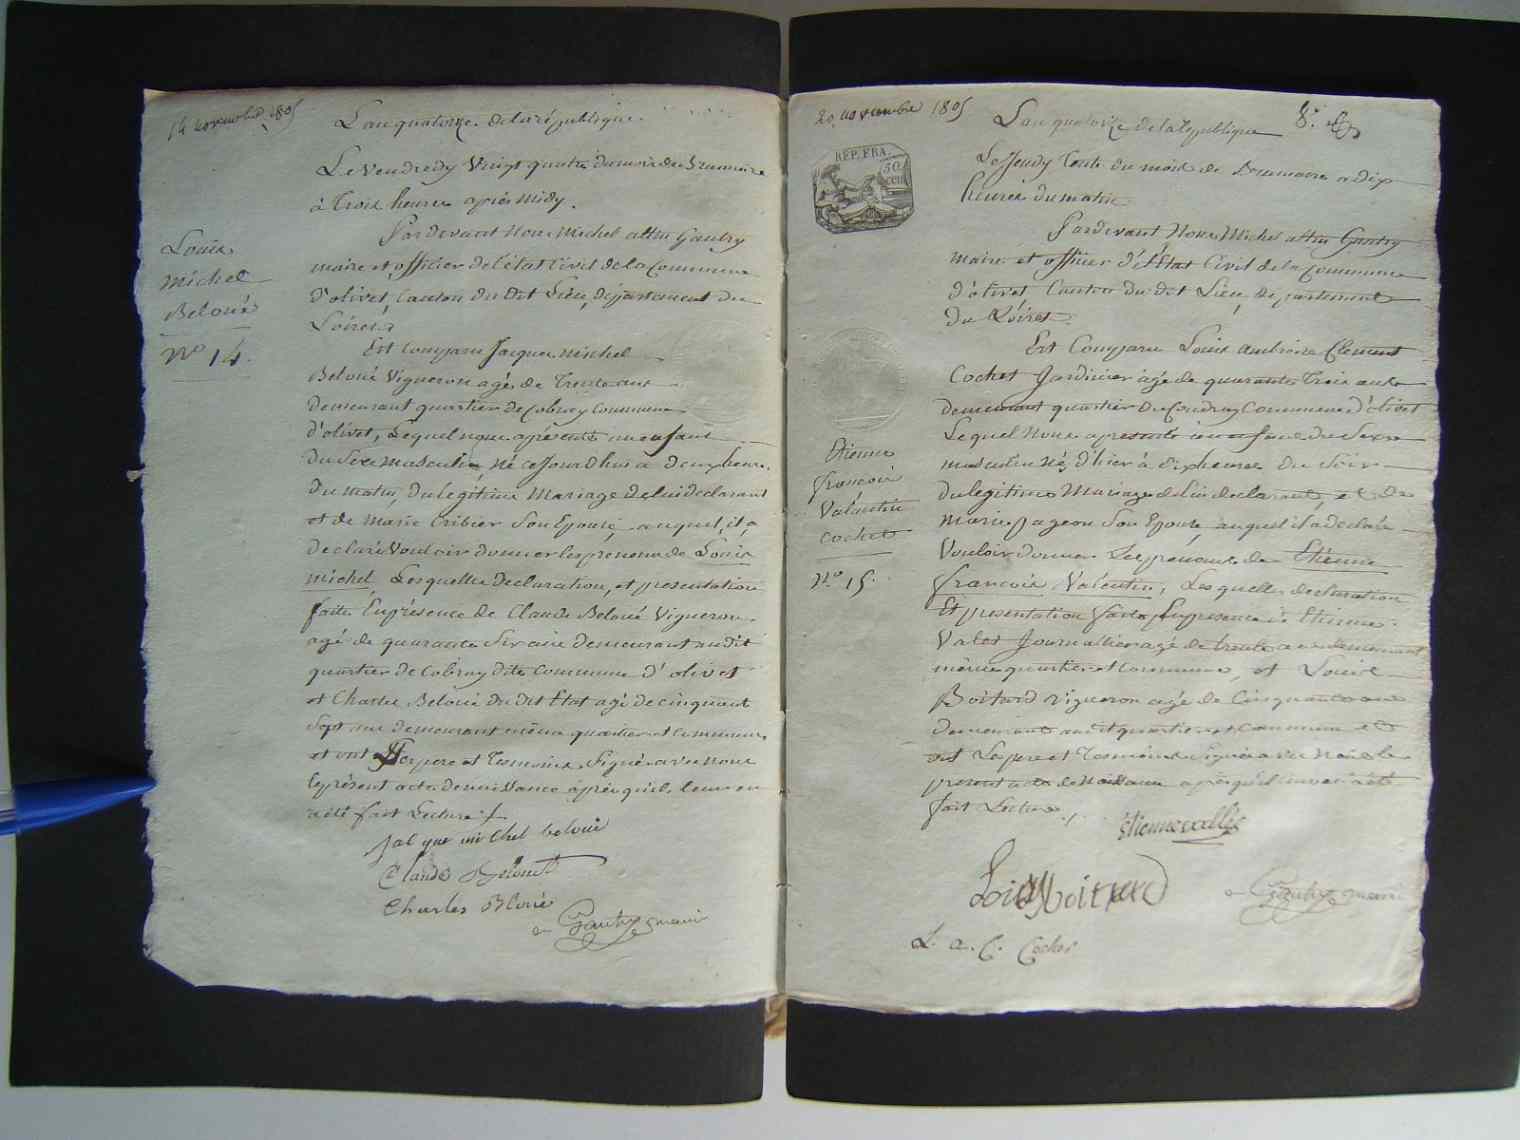 14 novembre 1805
L'an quatorze de la république.
Le vendredy vingt quatre du mois de Brumaire
à trois heures après midy.
Pardevant Nous Michel Gautry
maire et officier de l'état Civil de la Commune
d'olivet, Canton du dit Lieu, département du
Loiret
Est Comparu Jacques michel
Beloué Vigneron agé de Trente ans
demeurant quartier de Cobray Commune
d'olivet, Lequel nous a présenté un enfant
du Sexe masculin né ce Jourd'hui à deux heures
du matin, du légitime Mariage de lui déclarant
et de Marie Cribier Son Epouse, auquel il a
déclaré Vouloir donner les prénoms de Louis
michel, Lesquelles declaration, et presentation
faite En présence de Claude Beloué Vigneron
agé de quarante Six ans demeurant au dit
quartier de Cobray dite Commune d'olivet
et Charles Beloué du dit Etat agé de cinquante
Sept ans demeurant même quartier et commune,
et ont les pere et Temoins Signé avec nous
le présent acte de naissance après qu'il leur en
a été fait Lecture
Louis
michel
Beloué
N° 14.
Jacque michel beloué
Claude Beloué
Charles Bloué
Gautry maire
20 novembre 1805
L'an quatorze de la république
8.
REP. FRA.
50
cen
Le Jeudy du mois de Brumaire a dix
heures du matin
Pardevant Nous Michel Gautry
maire et officier d'État Civil de la Commune
d'olivet Canton du dit Lieu, département
du Loiret.
Est Comparu Louis ambroise Clement
Cochet Jardinier âgé de quarante Trois ans
demeurant quartier du Coudray Commune d'olivet
Lequel Nous a presenté un enfant du Sexe
masculin né d'hier à dix heures du Soir
du legitime Mariage de lui déclarant, et de
Marie pageau Son Epouse, auquel il a declaré
Vouloir donner Les prénoms de Etienne
françois Valentin, Lesquelles declaration
Et presentation faite En presence de Etienne
Valet Journallier agé de trente ans demeurant
même quartier et Commune, et Louis
Boitard vigneron agé de Cinquante ans
demeurant au dit quartier et Commune et
ont Les pere et Temoins Signé avec Nous le
present acte de Naissance après qu'il leur en a été
fait Lecture.
Etienne
françois
Valentin
cochet
N° 15.
Etienne vallés
Loui Boitard
Gautry maire
L. a. C. Cochet